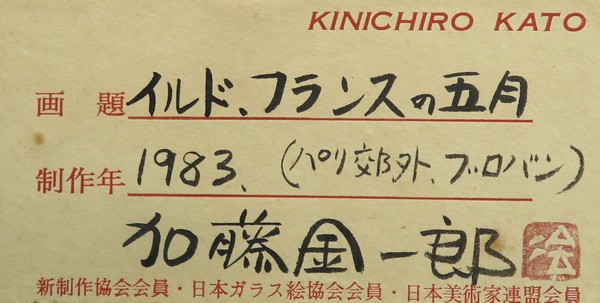 KINICHIRO KATO
画題 イルド、フランスの五月
制作年 1983、(パリ郊外、ブロバン)
加藤金一郎
新制作協会会員・日本ガラス絵協会会員・日本美術家連盟会員